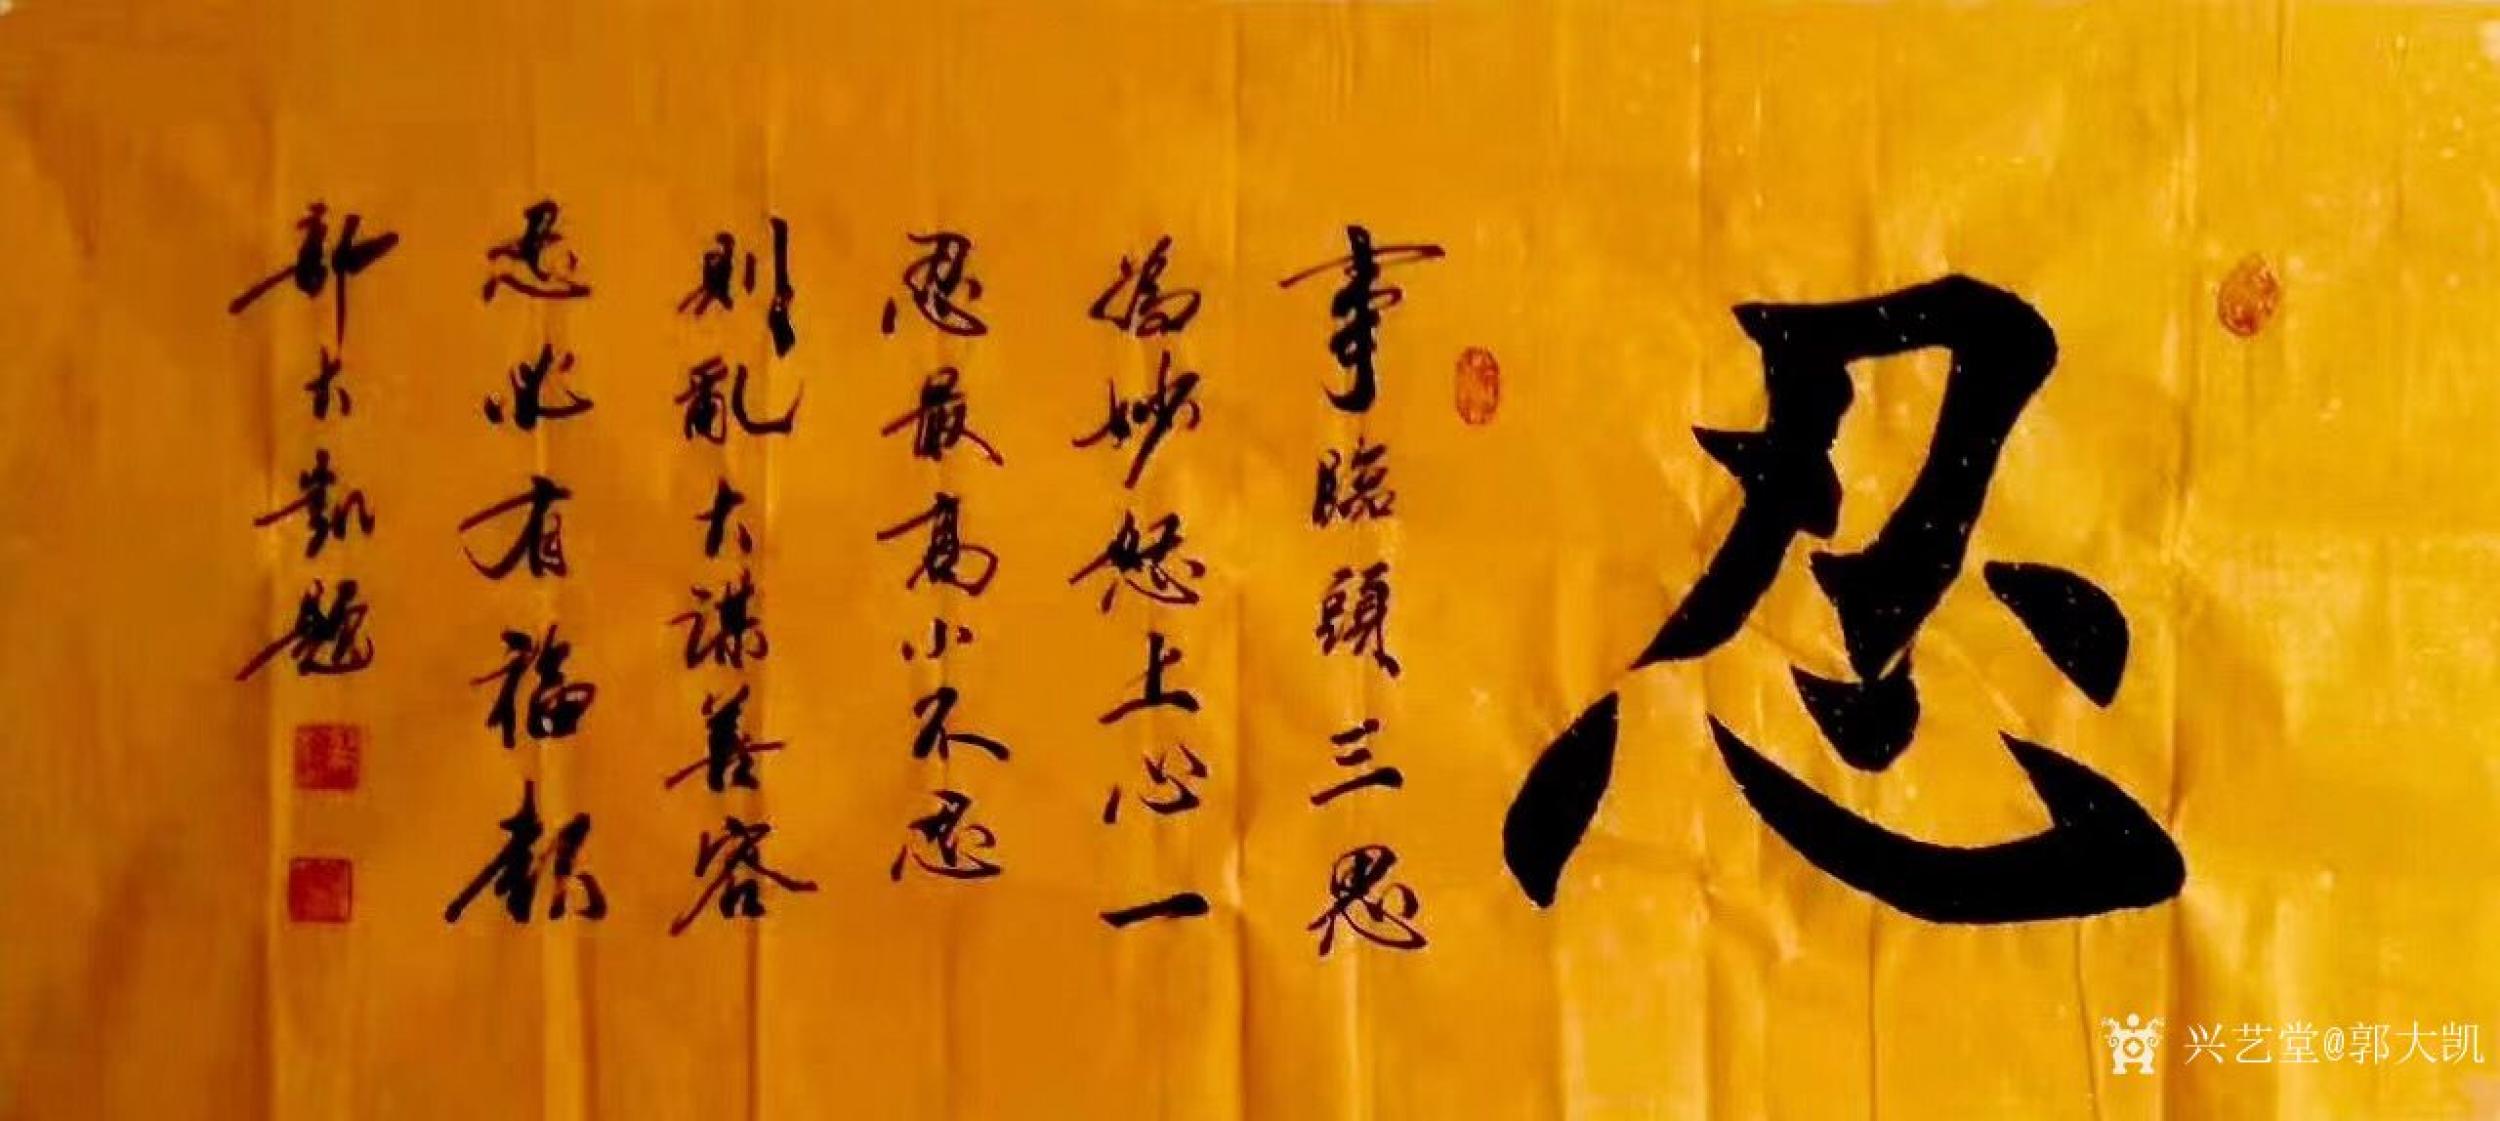 忍
事臨頭三思
為妙怒上心一
忍最高小不忍
則亂大謀善容
忍必有福報
郭大凱題
兴艺堂@郭大凯